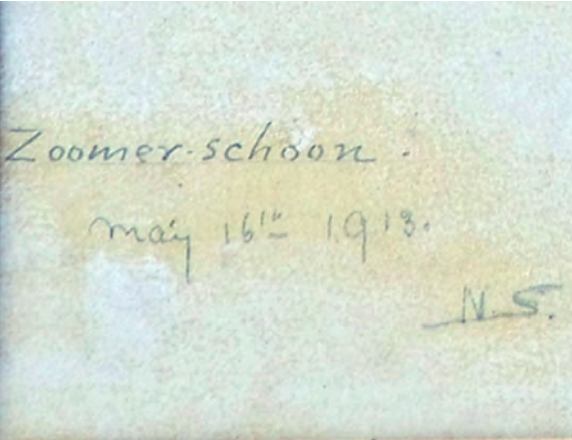 Zoomer-schoon.
May 16th 1913.
N.S.